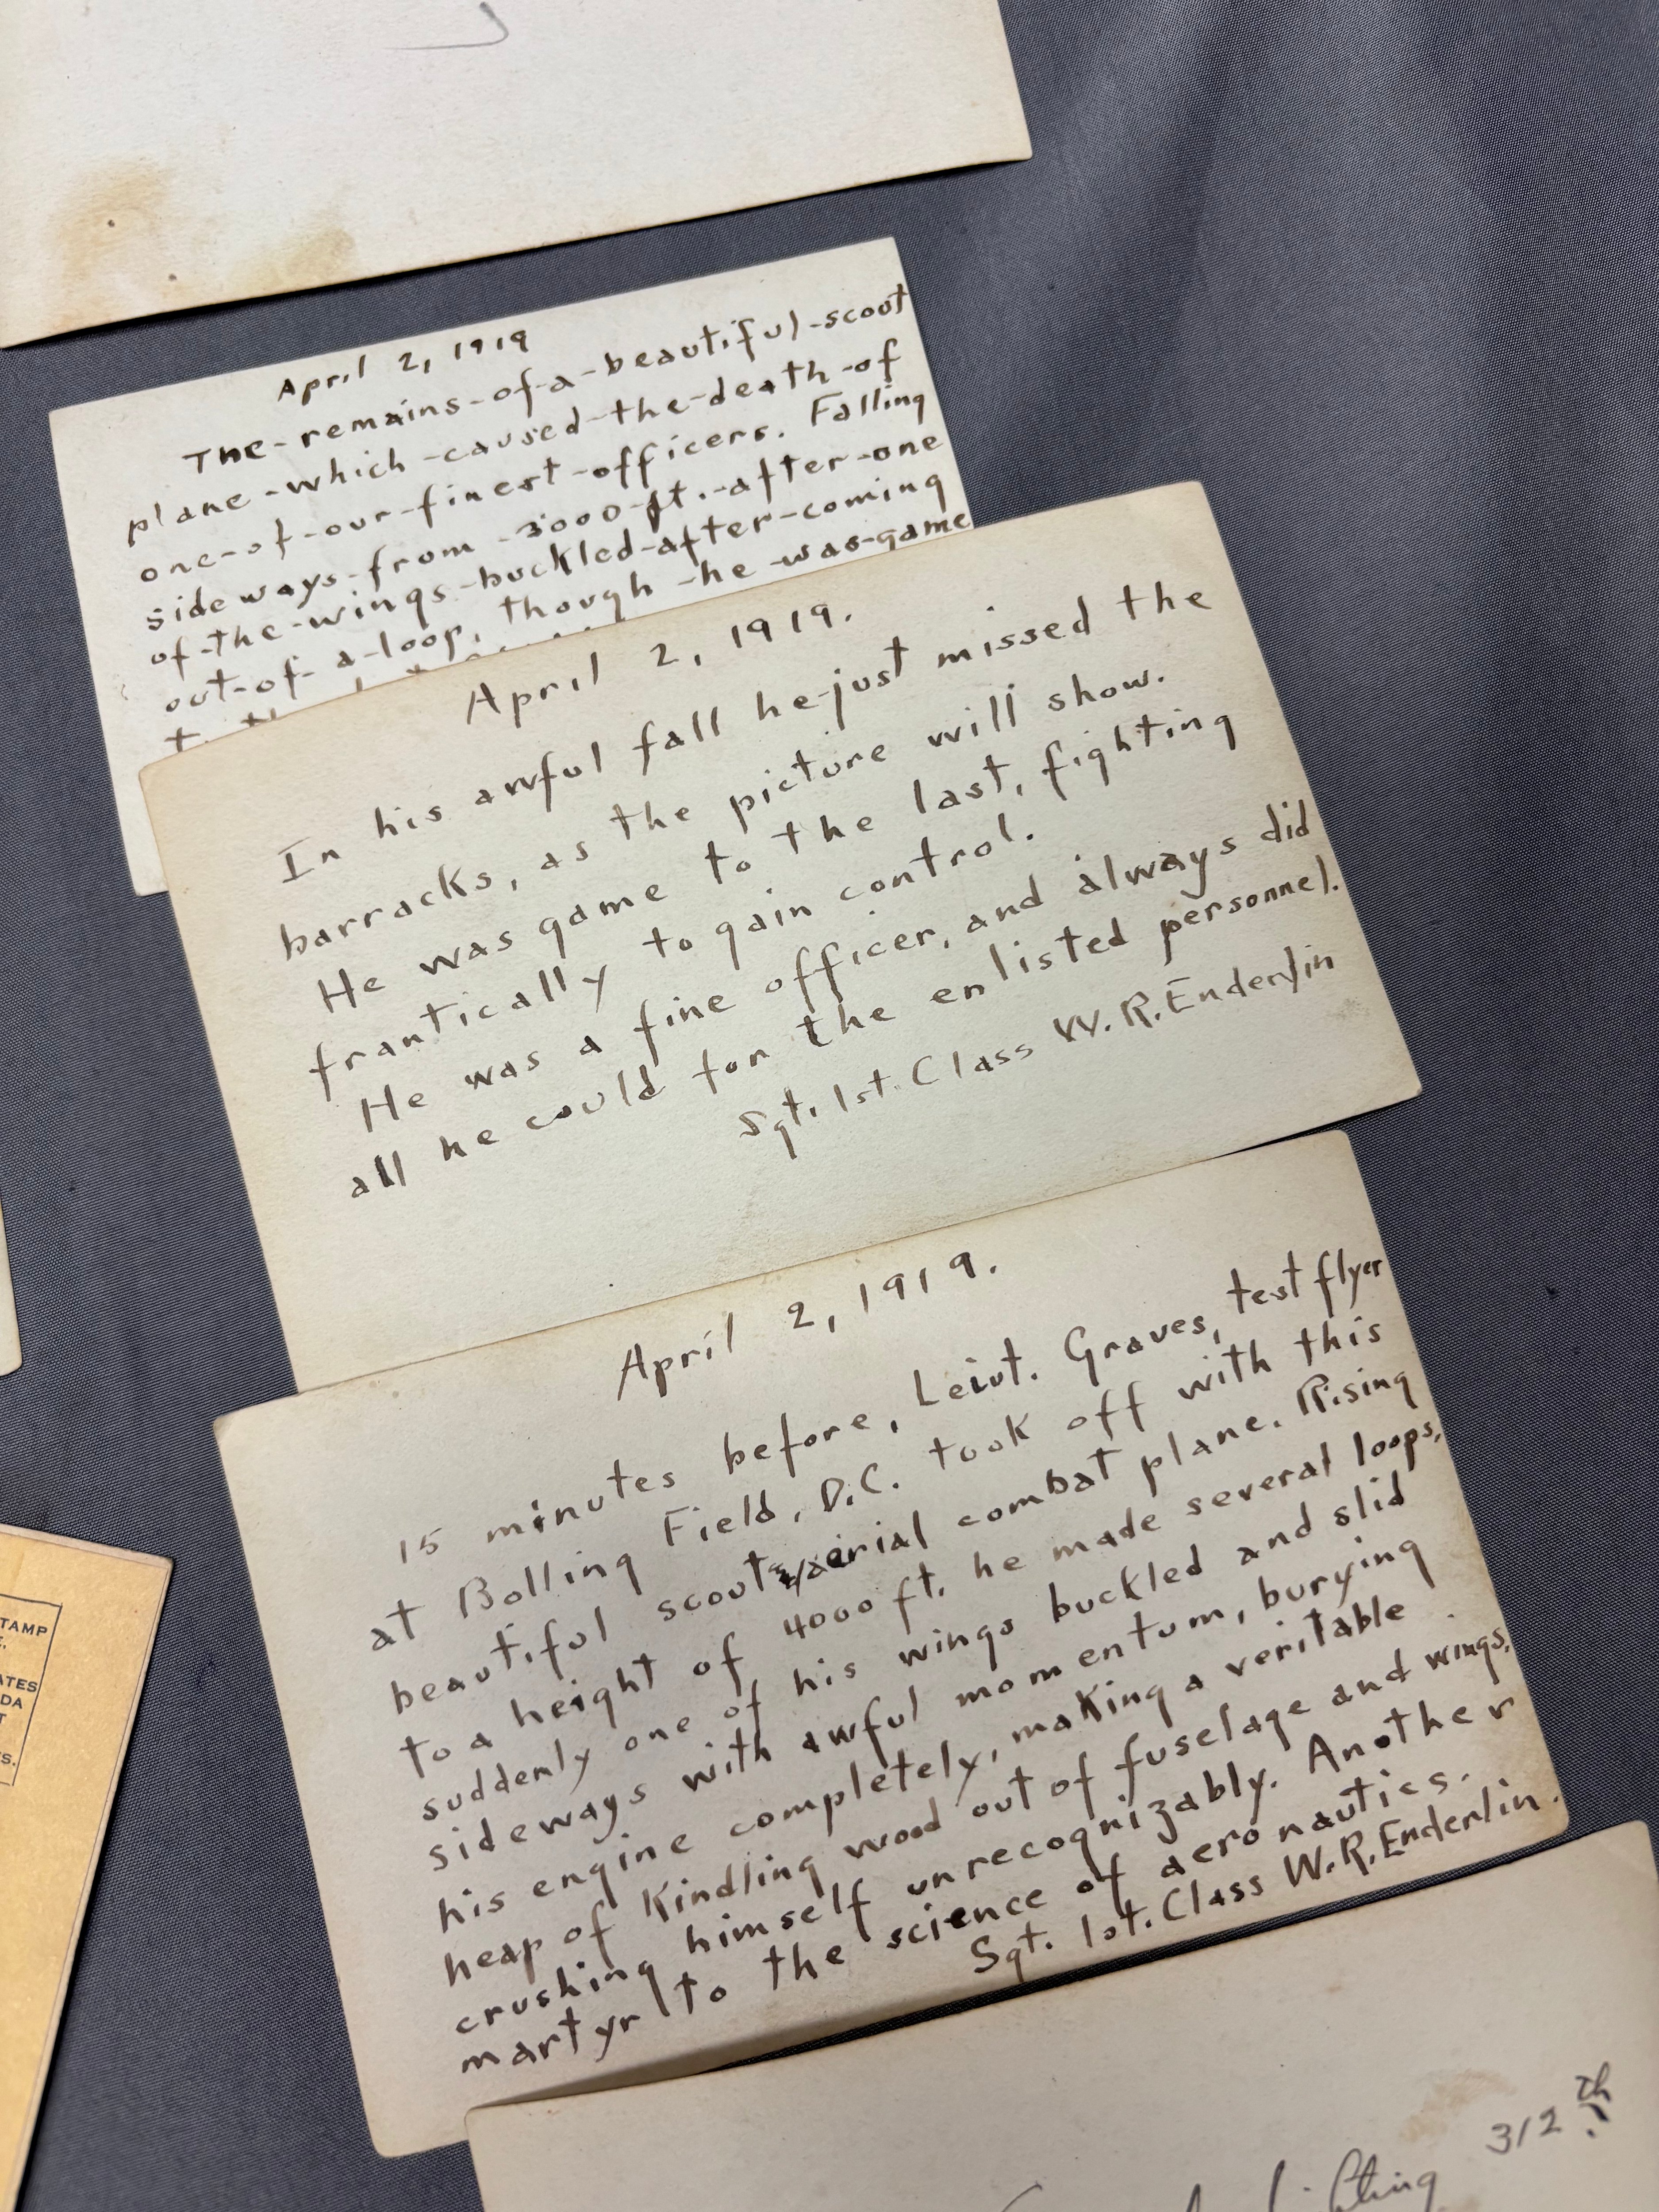 April 2, 1919
The-remains-of-a-beautiful-scout
plane-which-caused-the-death-of
one-of-our-finest-officers. Falling
sideways-from-3000-ft.-after-one
of-the-wings-buckled-after-coming
out-of-a-loop, though-he-was-game
April 2, 1919.
In his awful fall he-just missed the
barracks, as the picture will show.
He was game to the last, fighting
frantically to gain control.
He was a fine officer, and always did
all he could for the enlisted personnel.
Sgt. 1st. Class W.R. Enderlin
April 2, 1919.
15 minutes before, Leiut. Graves, test flyer
at Bolling Field, D.C. took off with this
beautiful scout aerial combat plane. Rising
to a height of 4000 ft. he made several loops,
suddenly one of his wings buckled and slid
sideways with awful momentum, burying
his engine completely, making a veritable
heap of kindling wood out of fuselage and wings,
crushing himself unrecognizably. Another
martyr to the science of aeronautics.
Sgt. 1st. Class W.R. Enderlin.
TAMP
ATES
DA
T
S.
312th